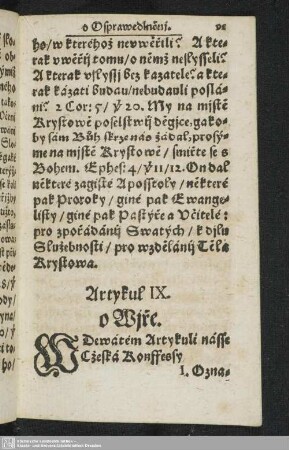 o Osprawedlněnij.
ho/ w kteréhož neuwěřili? A kte-
rak vwěřij tomu/ o němž neslysseli?
A kterak vslyssj bez kazatele? a kte-
rak kázati budau/ nebudauli poslá-
ni? 2 Cor: 5/ ỳ 20. My na mjstě
Krystowě poselstwij děgjce, gako-
by sám Bůh skrze nás žádal, prosý-
me na mjstě Krystowě/ smiřte se s
Bohem. Ephes: 4/ ỳ 11/12. On dal
některé zagisté Aposstoly/ některé
pak Proroky/ giné pak Ewange-
listy/ giné pak Pastýře a Včitelé:
pro zpořádánij Swatých/ k djlu
Služebnosti/ pro wzdělánij Těla
Krystowa.
Artykul IX.
o Wjře.
W Dewátém Artykuli násse
Cžeská Konffesý
1. Ozna-